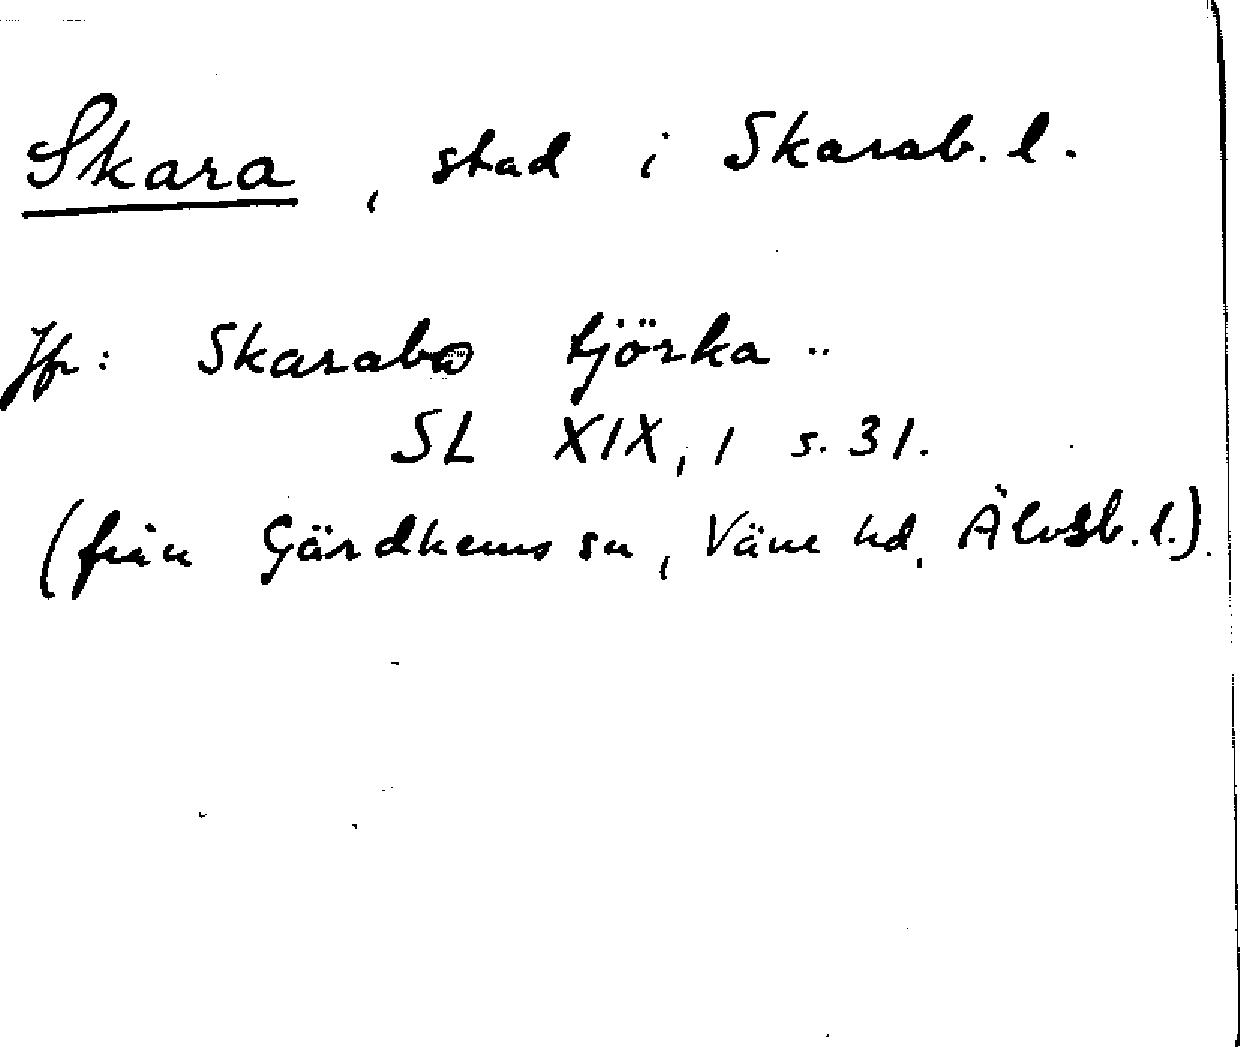 Skara, stad i Skarab. l.
Jfr: Skarabo tjörka ..
SL XIX, 1 s. 31.
(från Gärdhems sn, Väne hd, Älvsb. l.).